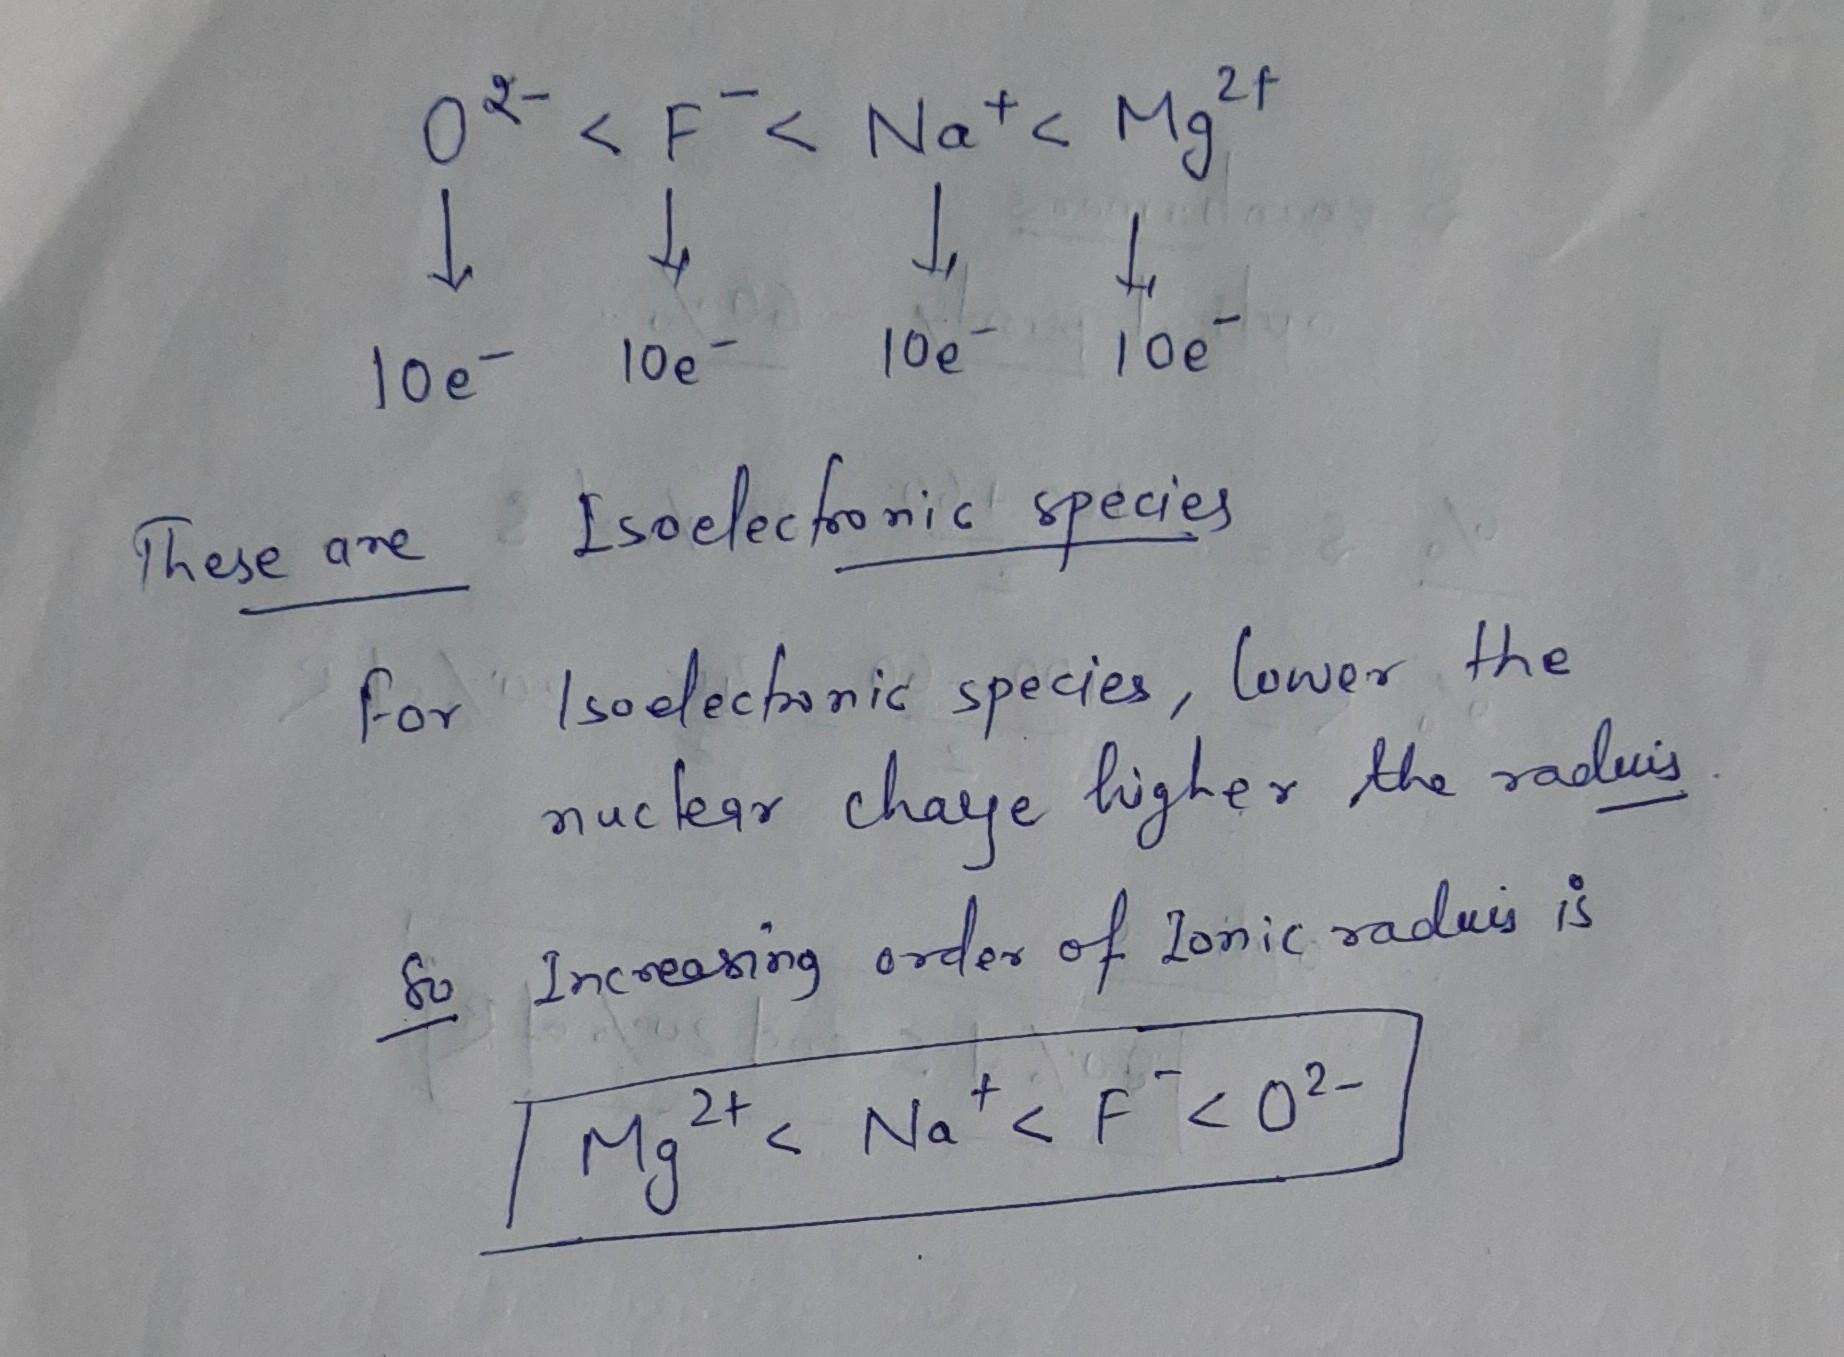 O²⁻ < F⁻ < Na⁺ < Mg²⁺
↓ ↓ ↓ ↓
10e⁻ 10e⁻ 10e⁻ 10e⁻
These are Isoelectronic species
For Isoelectronic species, lower the
nuclear charge higher the raduis.
So Increasing order of Ionic raduis is
Mg²⁺ < Na⁺ < F⁻ < O²⁻